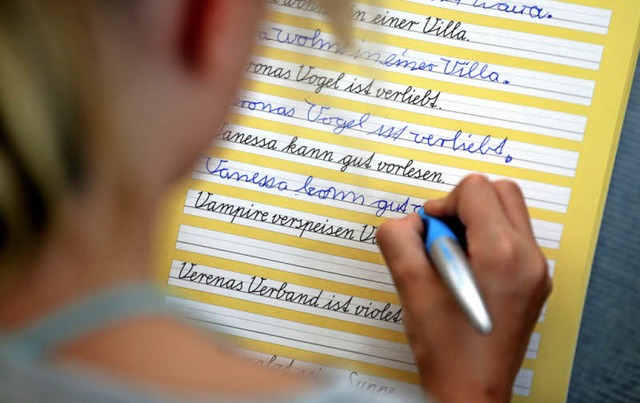 in einer Villa.
wohne in einer Villa.
Vogel ist verliebt.
Vogel ist verliebt.
Vanessa kann gut vorlesen.
Vanessa kann gut
Vampire verspeisen
Verenas Verband ist violett